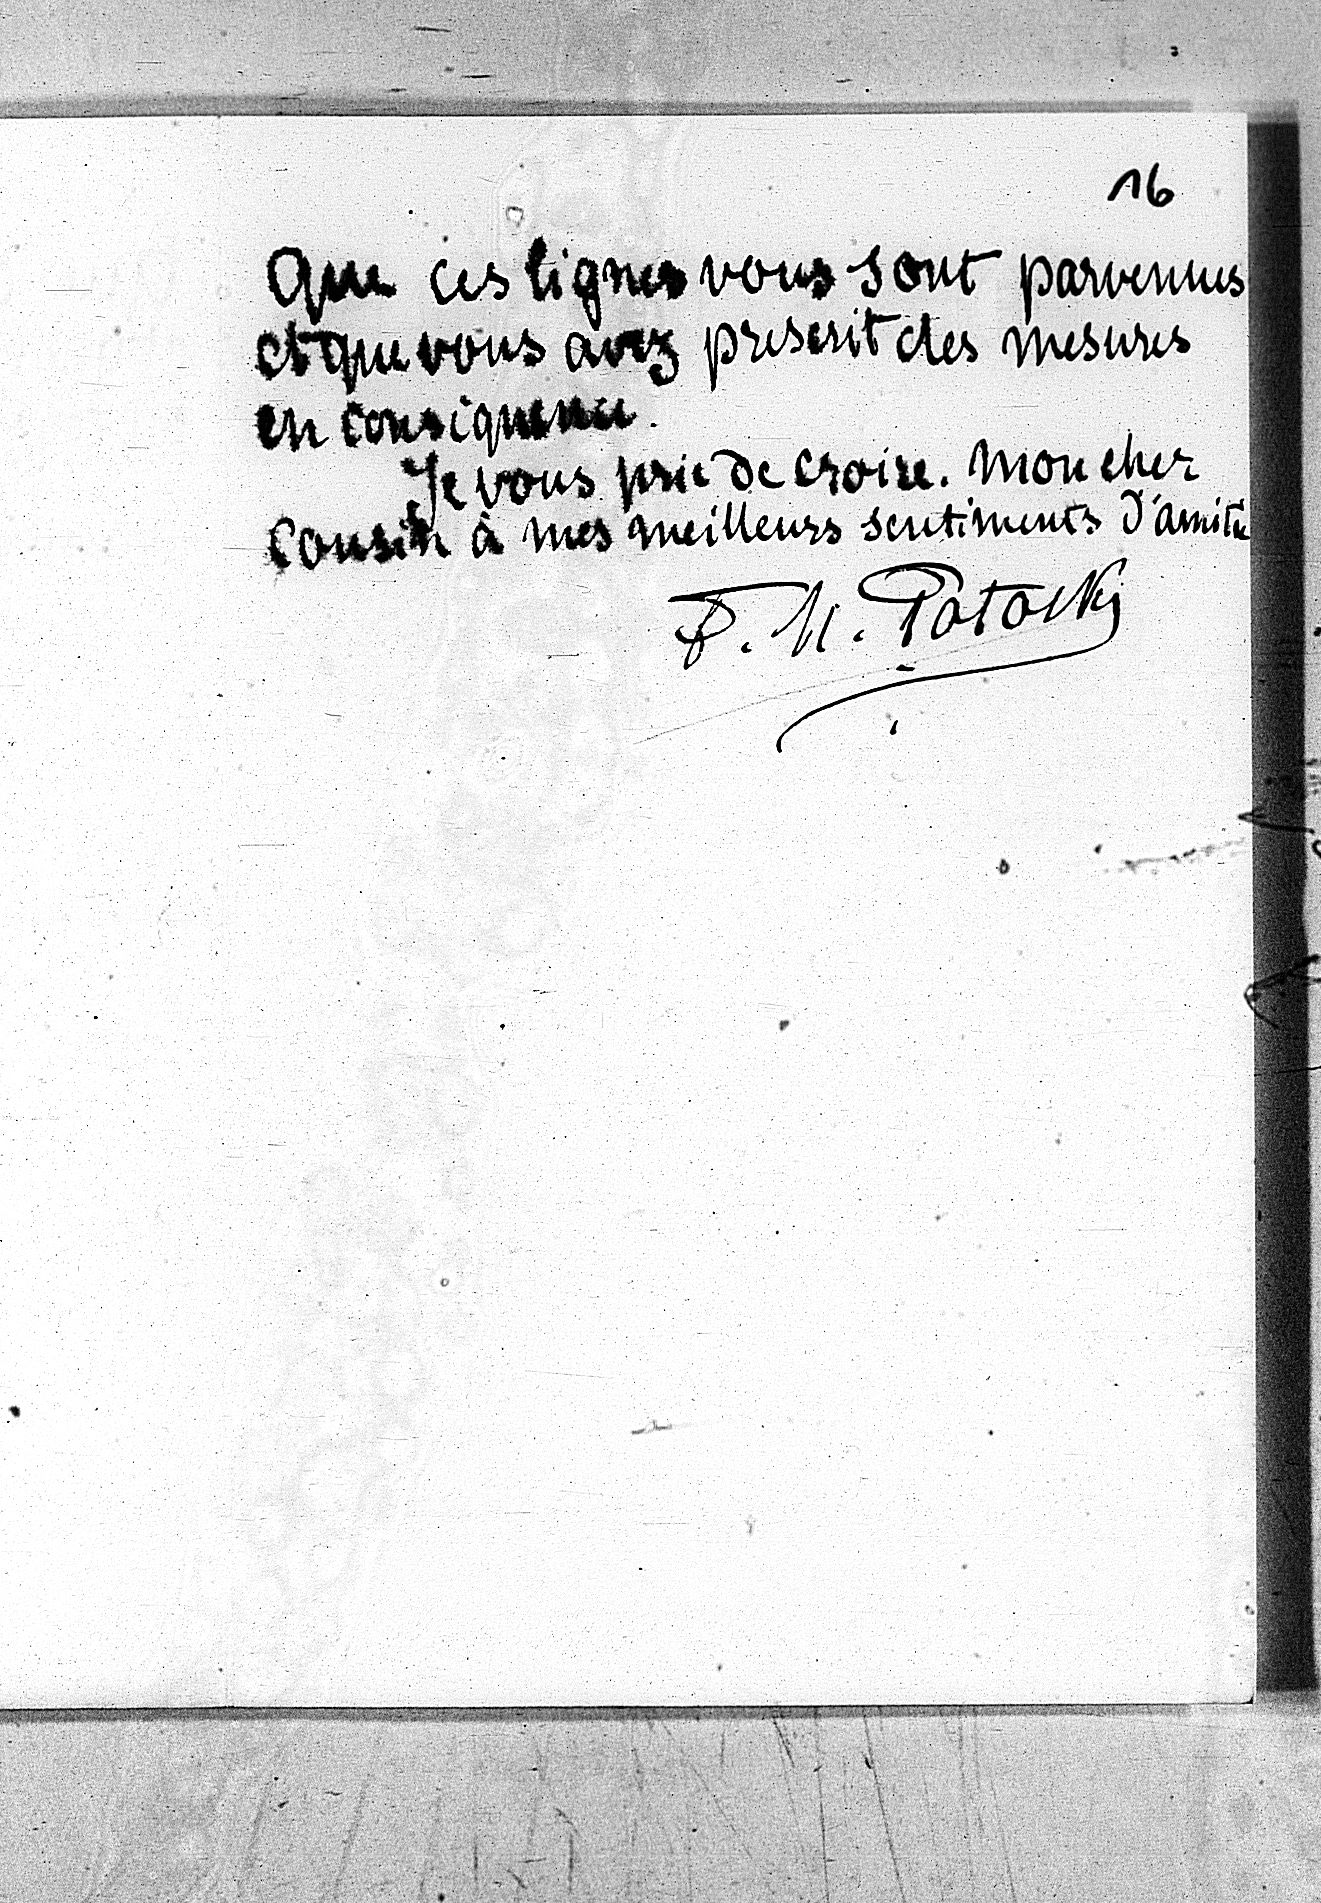 16
Que ces lignes vous sont parvenues
et que vous avez prescrit des mesures
en consiquence.
Je vous prie de croire. Mon cher
Cousin à mes meilleurs sentiments d'amitié
Potocki